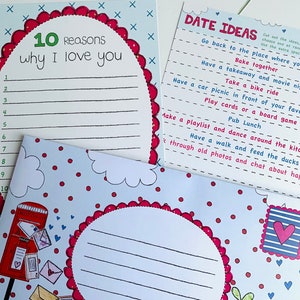 10 Reasons
why I love you
1
2
3
4
5
6
7
8
9
10
DATE IDEAS
Go back to the place where you
Bake together
Have a takeaway and movie nig
Take a bike ride
Have a car picnic in front of your fav
Play cards or a board game
Pub Lunch
Make a playlist and dance around the kitc
Have a walk and feed the ducks
through old photos and chat about hap